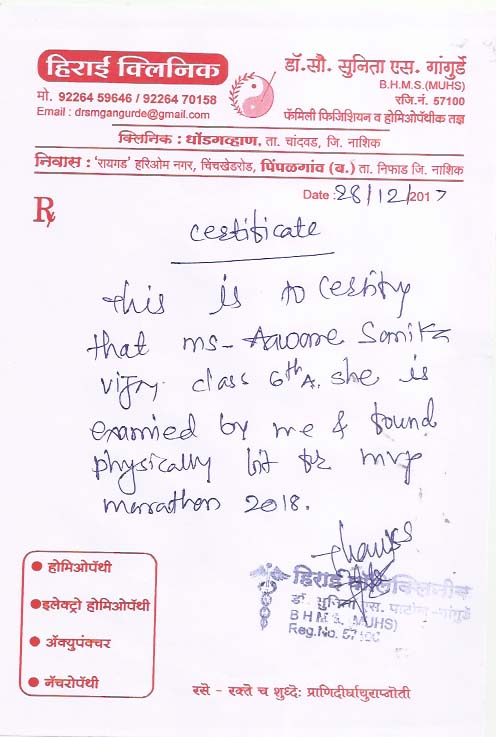 हिराई क्लिनिक
मो. 92264 59646 / 92264 70158
Email : drsmgangurde@gmail.com
डॉ.सौ. सुनिता एस. गांगुर्डे
B.H.M.S.(MUHS)
रजि.नं. 57100
फॅमिली फिजिशियन व होमिओपॅथीक तज्ञ
क्लिनिक : धोंडगव्हाण, ता. चांदवड, जि. नाशिक
निवास : 'रायगड' हरिओम नगर, चिंचखेडरोड, पिंपळगांव (ब.) ता. निफाड जि. नाशिक
Date : 28/12/2017
Rx
certificate
this is to certify
that ms- Sanika
Vijay class 6th A. she is
examied by me & found
physically fit for mvp
marathon 2018.
Thanks
हिराई क्लिनीक
डॉ. सुनिता एस. गांगुर्डे
B H M S. (MUHS)
Reg.No. 57100
• होमिओपॅथी
• इलेक्ट्रो होमिओपॅथी
• ॲक्युपंक्चर
• नॅचरोपॅथी
रसे - रक्ते च शुध्देः प्राणिदीर्घायुराप्नोती